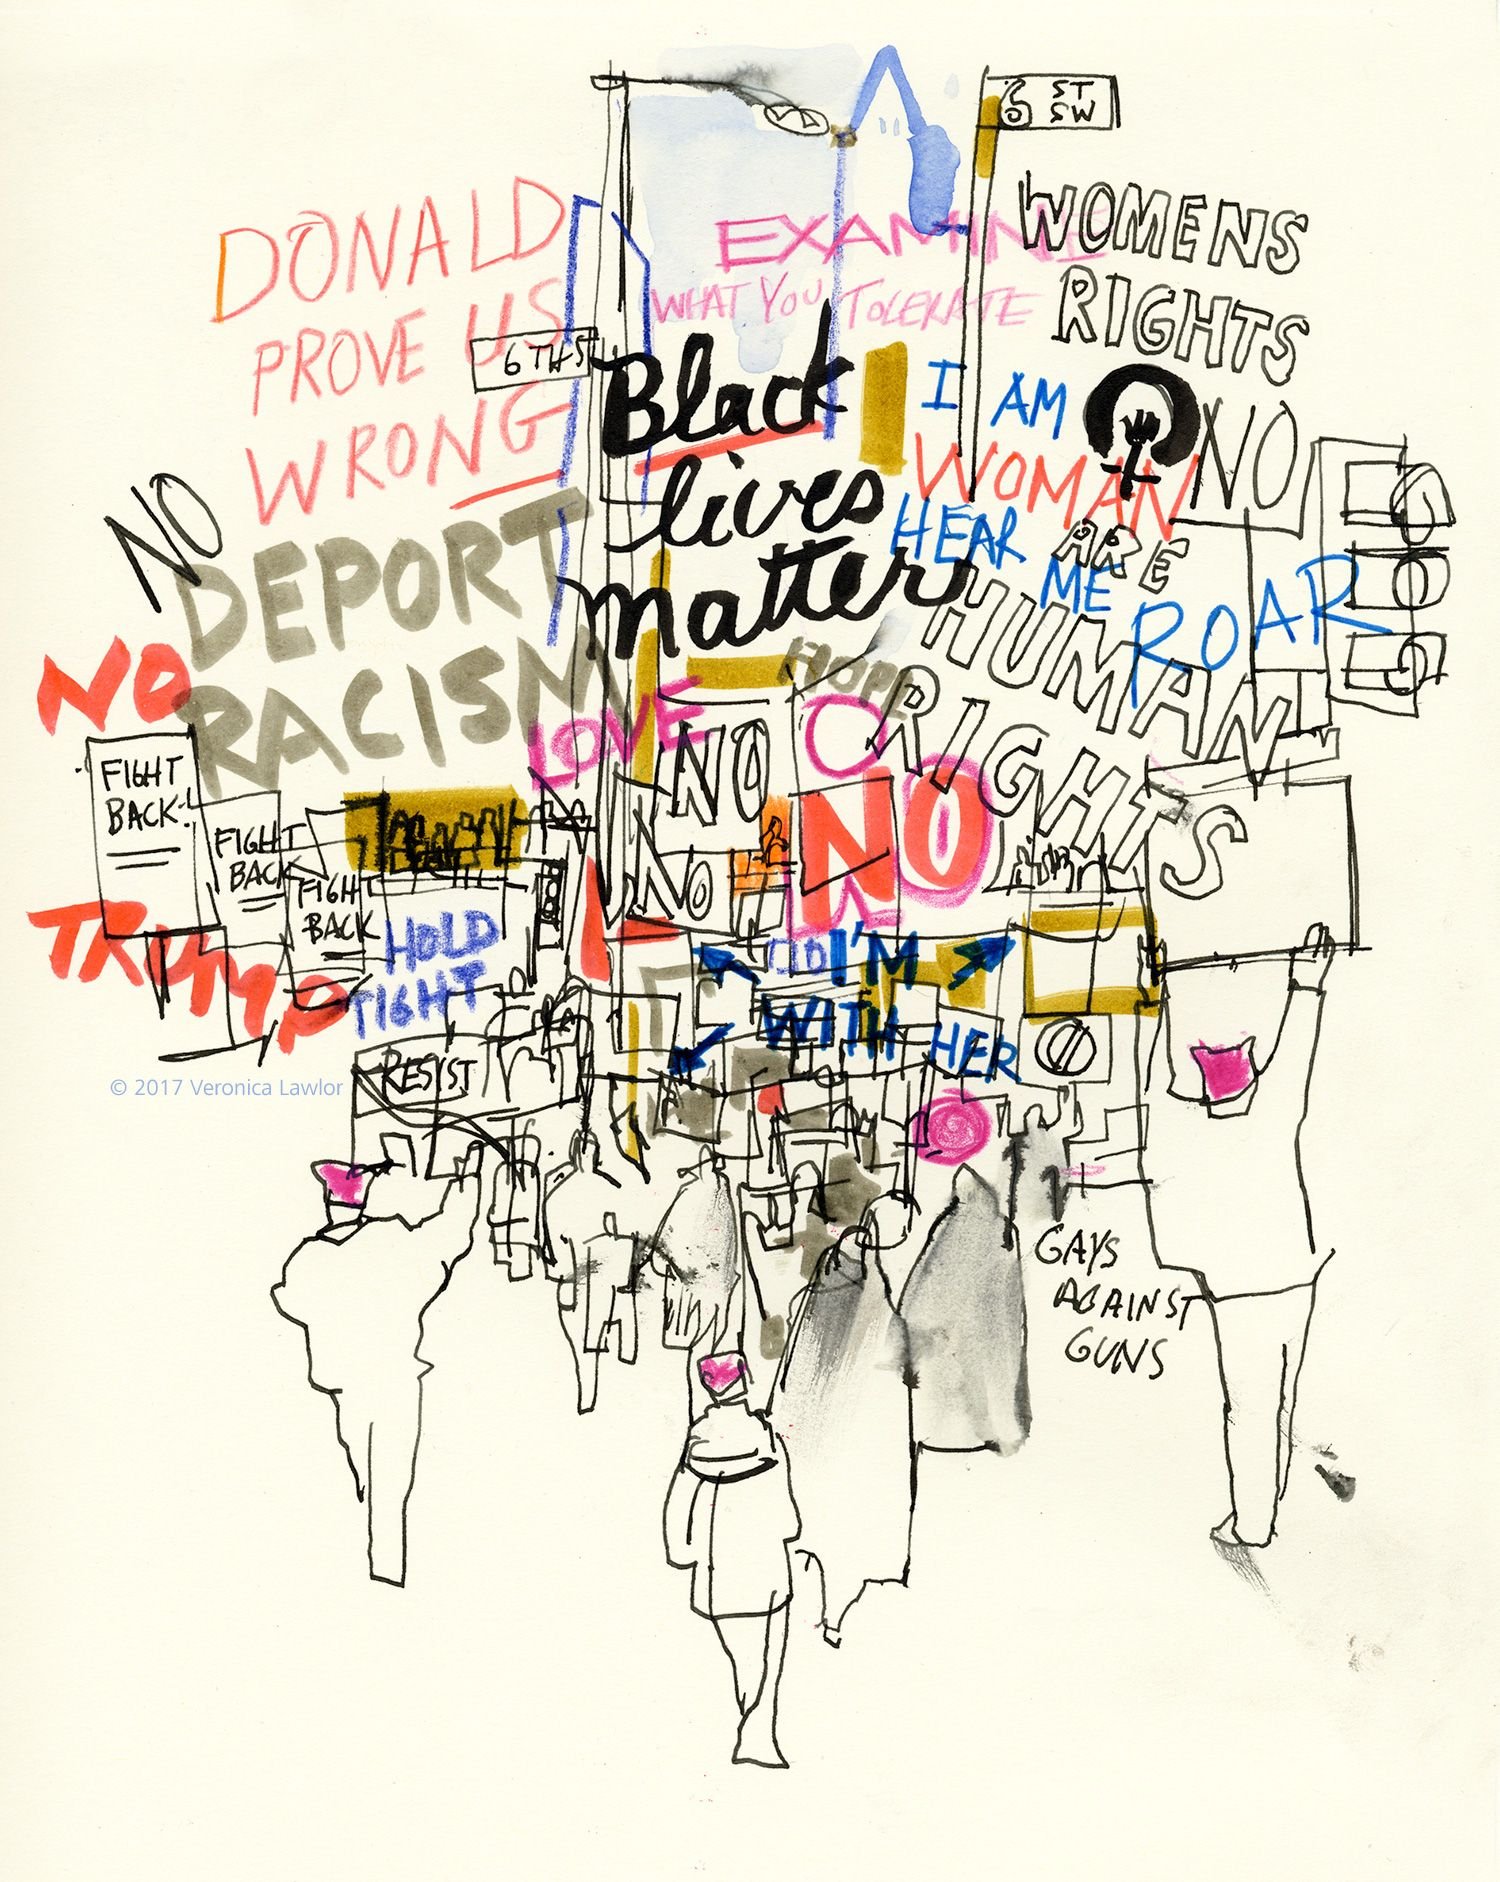 6 ST
SW
DONALD
PROVE US
WRONG
6TH ST
EXAMINE
WHAT YOU TOLERATE
WOMENS
RIGHTS
ARE
HUMAN
RIGHTS
Black
lives
matter
I AM
WOMAN
HEAR
ME
ROAR
NO
NO
DEPORT
RACISM
NO
TRUMP
HOPE
LOVE
NO
NO
NO
FIGHT
BACK!
FIGHT
BACK
FIGHT
BACK
HOLD
TIGHT
I'M
WITH HER
RESIST
© 2017 Veronica Lawlor
GAYS
AGAINST
GUNS